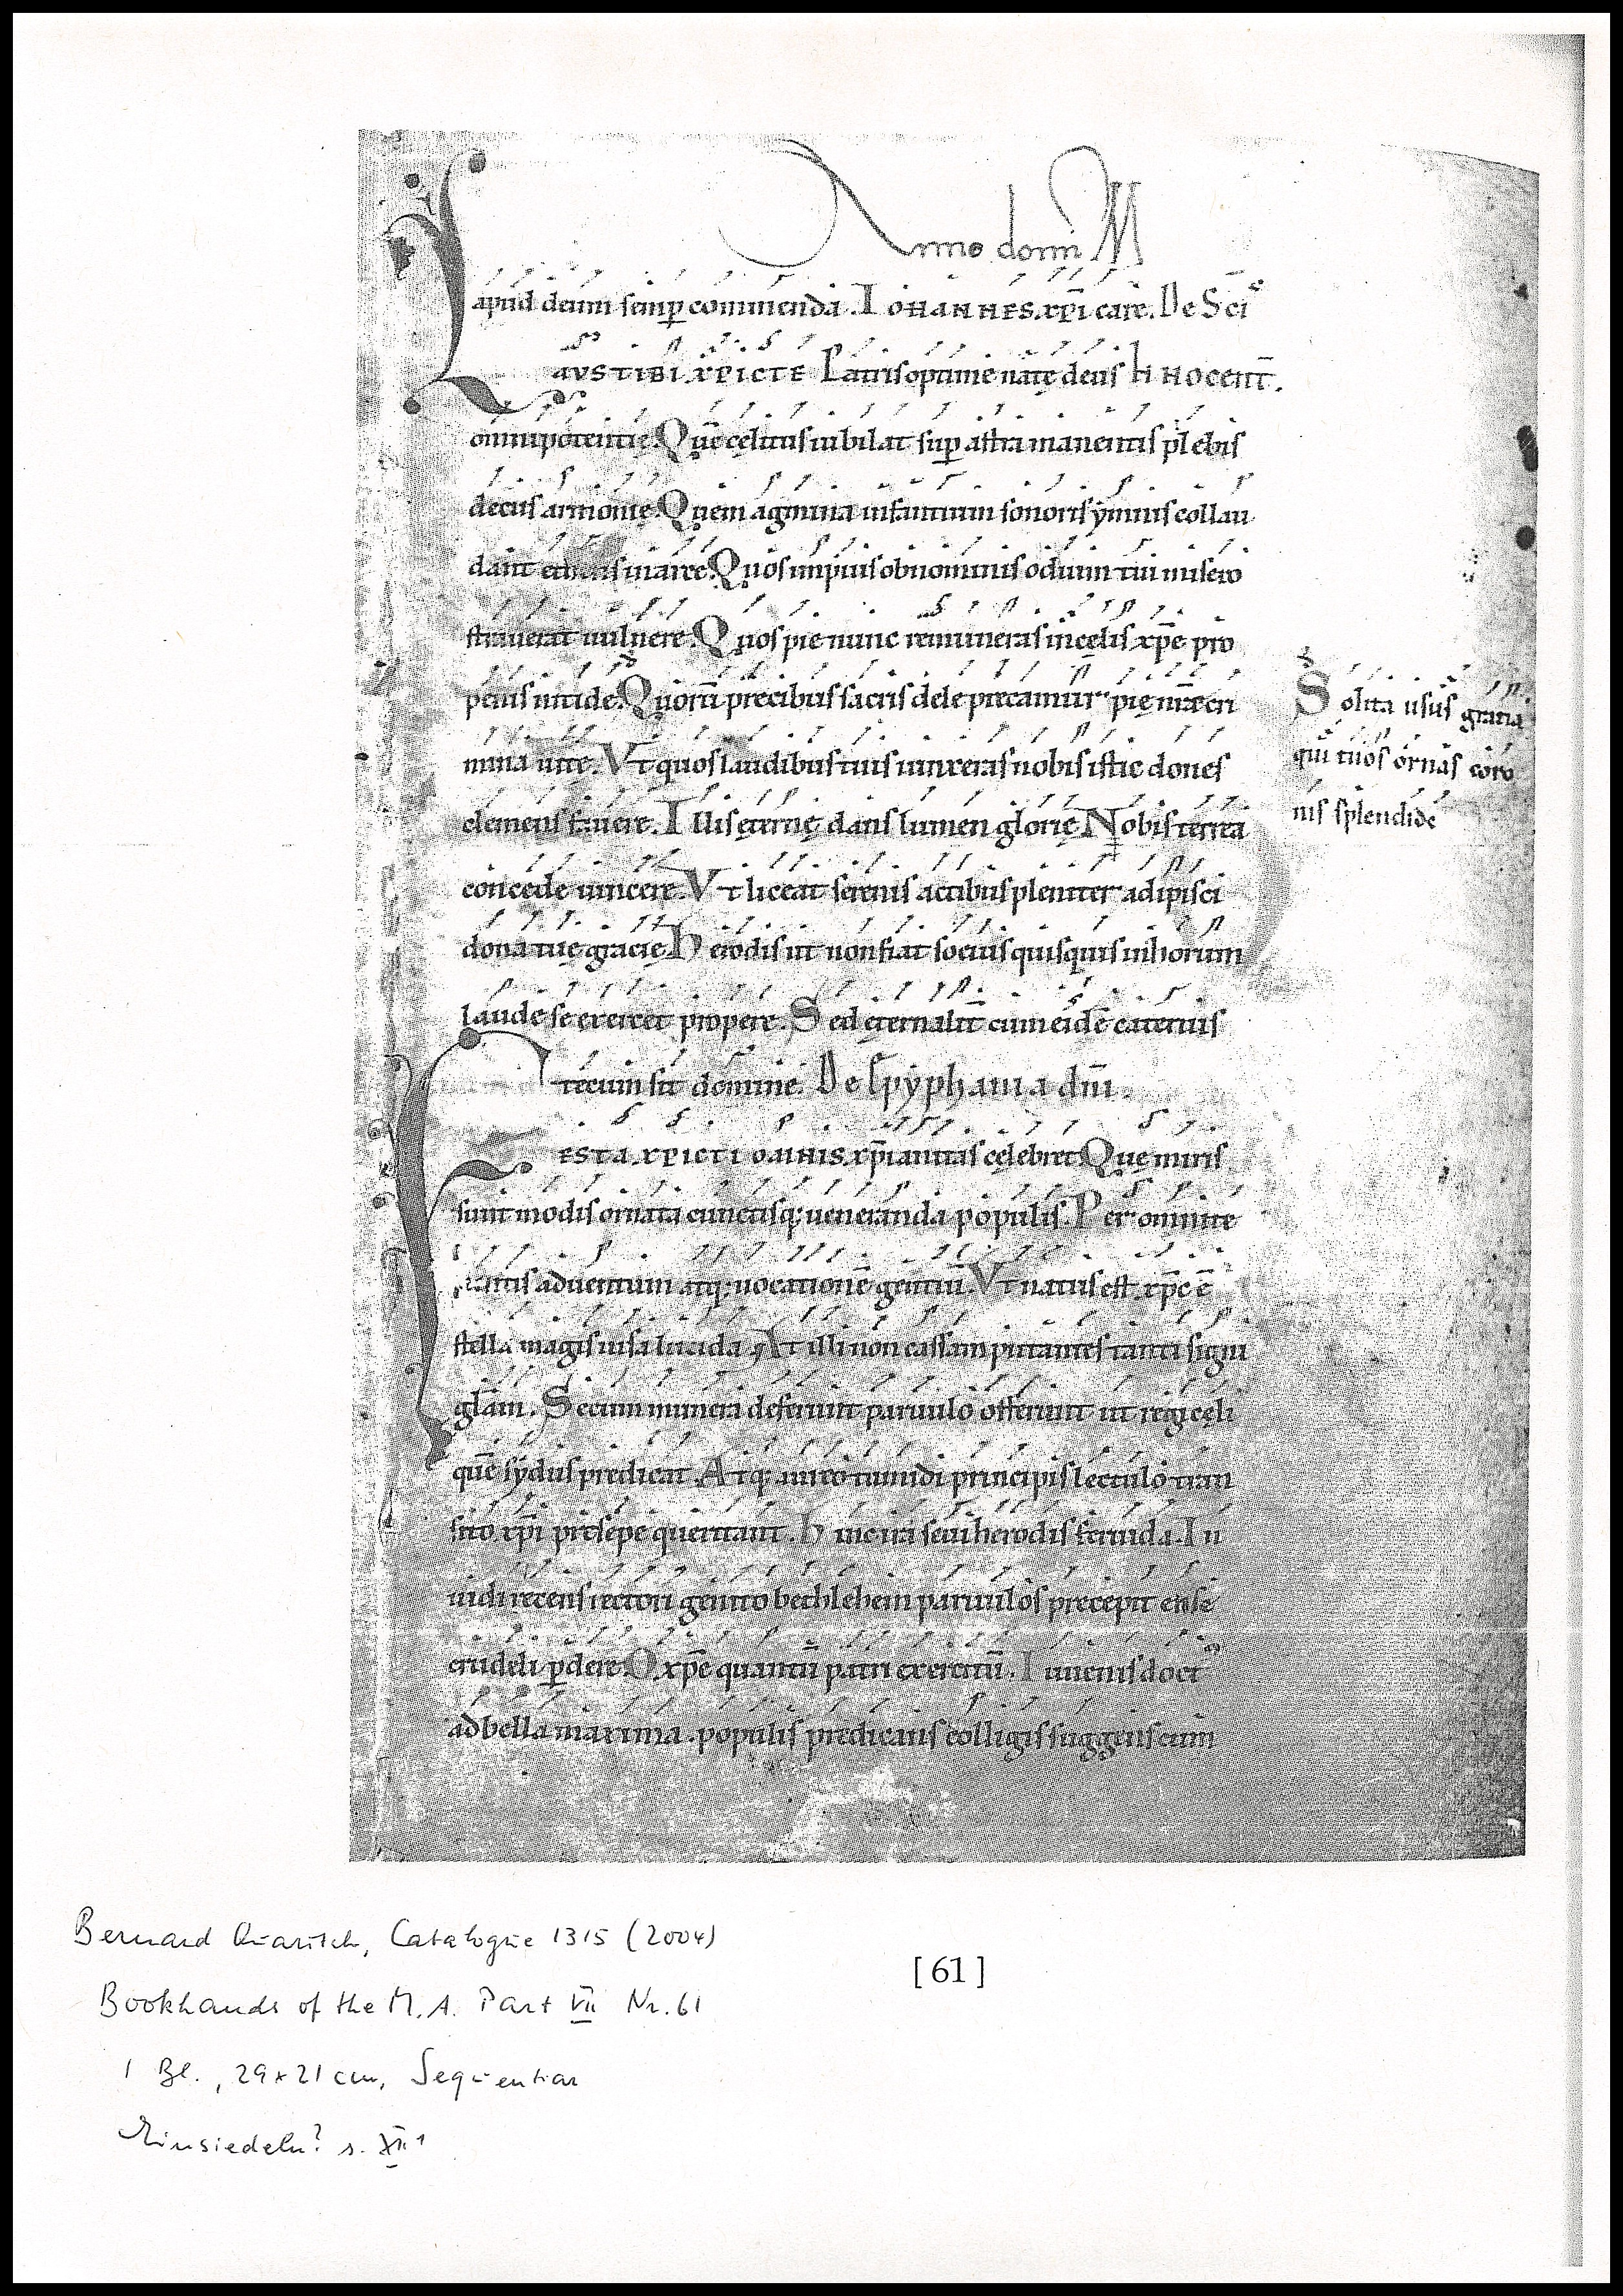 Anno domi M
apud deum semp commenda. IOHANNES. xpi care. De Sci
L AVS TIBI. XPICTE Patris optime natę deus INNOCENT̄.
omnipotentię. Quē cęlitus iubilat sup astra manentis plebis
decus armonię. Quem agmina infantium sonoris ymnis collau
dant in arce. Quos impius ob nominis odium tui misero
straverat vulnere. Quos pie nunc remuneras in cęlis xp̄e pro
peius nitide. Quorū precibus sacris dele precamur pię nr̄e cri
mina vitę. Vt quos laudibus tuis iunxeras nobis istic dones
clemens favere. Illis ęternę dans lumen glorię. Nobis terrea
concede vincere. Vt liceat serenis actibus pleniter adipisci
dona tuę gracię. Herodis ut non fiat socius quisquis in horum
laude se exercet propere. Sed ęternalit̄ cum eisdē catervis
tecum sit domine. De Epyphania dn̄i.
F ESTA XPICTI OMNIS xp̄ianitas cęlebret. Quę miris
sunt modis ornata cunctisq; veneranda populis. Per omnite
nentis adventum atq; vocationē gentiū. Vt natus est xp̄c ē
stella magis visa lucida. At illi non cassam putantes tanti signi
glām. Secum munera deferunt parvulo offerunt ut regi cęli
quē sydus predicat. Atq; aureo tumidi principis lectulo tran
sito xp̄i presepe queritant. Hinc ira sevi herodis fervida. In
vidi recens rectori genito bethlehem parvulos precepit ense
crudeli pdere. O xp̄e quantū patri exercitū. Iuvenis doct
ad bella maxima. populis predicans colligis suggens cum
Solita usus gratia
qui tuos ornas coro
nis splendide
Bernard Quaritch, Catalogue 1315 (2004)
Bookhands of the M. A. Part VII Nr. 61
1 Bl., 29 x 21 cm, Sequentiar
Einsiedeln? s. XII¹
[61]